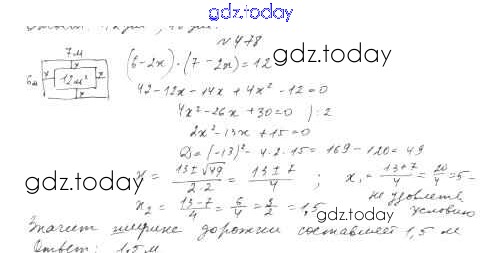 gdz.today
№ 478
7м
6м
12м²
x
(6-2x)·(7-2x)=12
gdz.today
42-12x-14x+4x²-12=0
4x²-26x+30=0 ):2
2x²-13x+15=0
D=(-13)²-4·2·15=169-120=49
x = 13±√49/2·2 = 13±7/4 ; x₁ = 13+7/4 = 20/4 = 5 -
gdz.today
не удовлетв. условию
x₂ = 13-7/4 = 6/4 = 3/2 = 1,5
gdz.today
Значит ширина дорожки составляет 1,5 м
Ответ: 1,5 м